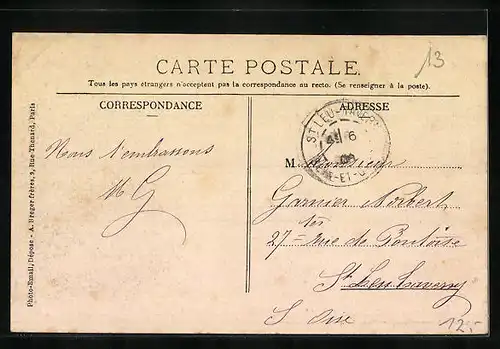 13
CARTE POSTALE
Tous les pays étrangers n'acceptent pas la correspondance au recto. (Se renseigner à la poste).
CORRESPONDANCE
ADRESSE
Photo-Email, Dépose - A. Breger frères, 9, Rue Thénard, Paris
Nous t'embrassons
M G
ST LEU-TAVERNY
6
SEINE-ET-OISE
M. Monsieur
Garnier Norbert
27 ter rue de Pontoise
St Leu Taverny
S Oise
125-